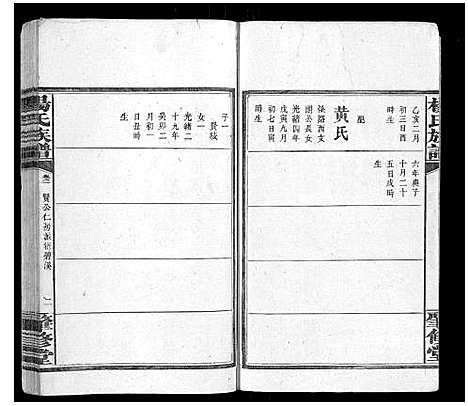 楊氏族譜
乙亥二月
初三日酉
時生
六年庚子
十月二十
五日戌時
生
配
黃氏
係路西文
開公長女
光緒四年
戊寅九月
初七日寅
時生
肇修堂
子一
賢
女一
光緒二
十九年
癸卯二
月初一
日丑時
生
楊氏族譜
卷二
賢公仁初派衍碧溪
一
肇修堂